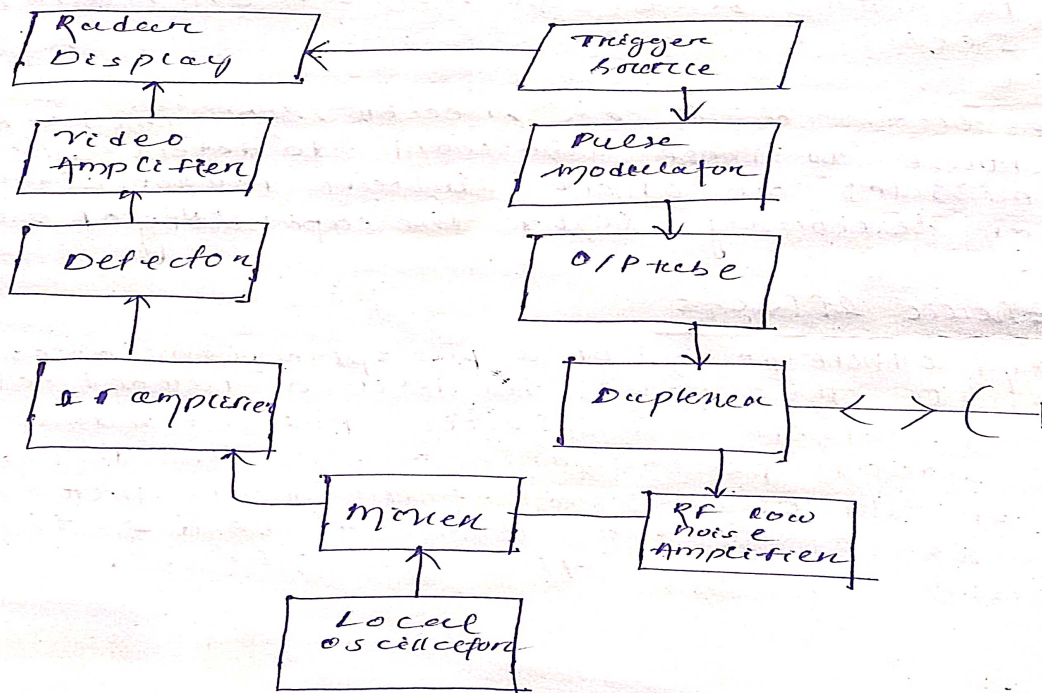 Radar
Display
Trigger
Source
Video
Amplifier
Pulse
Modulator
Detector
O/P tube
IF amplifier
Duplexer
Mixer
RF Low
Noise
Amplifier
Local
Oscillator